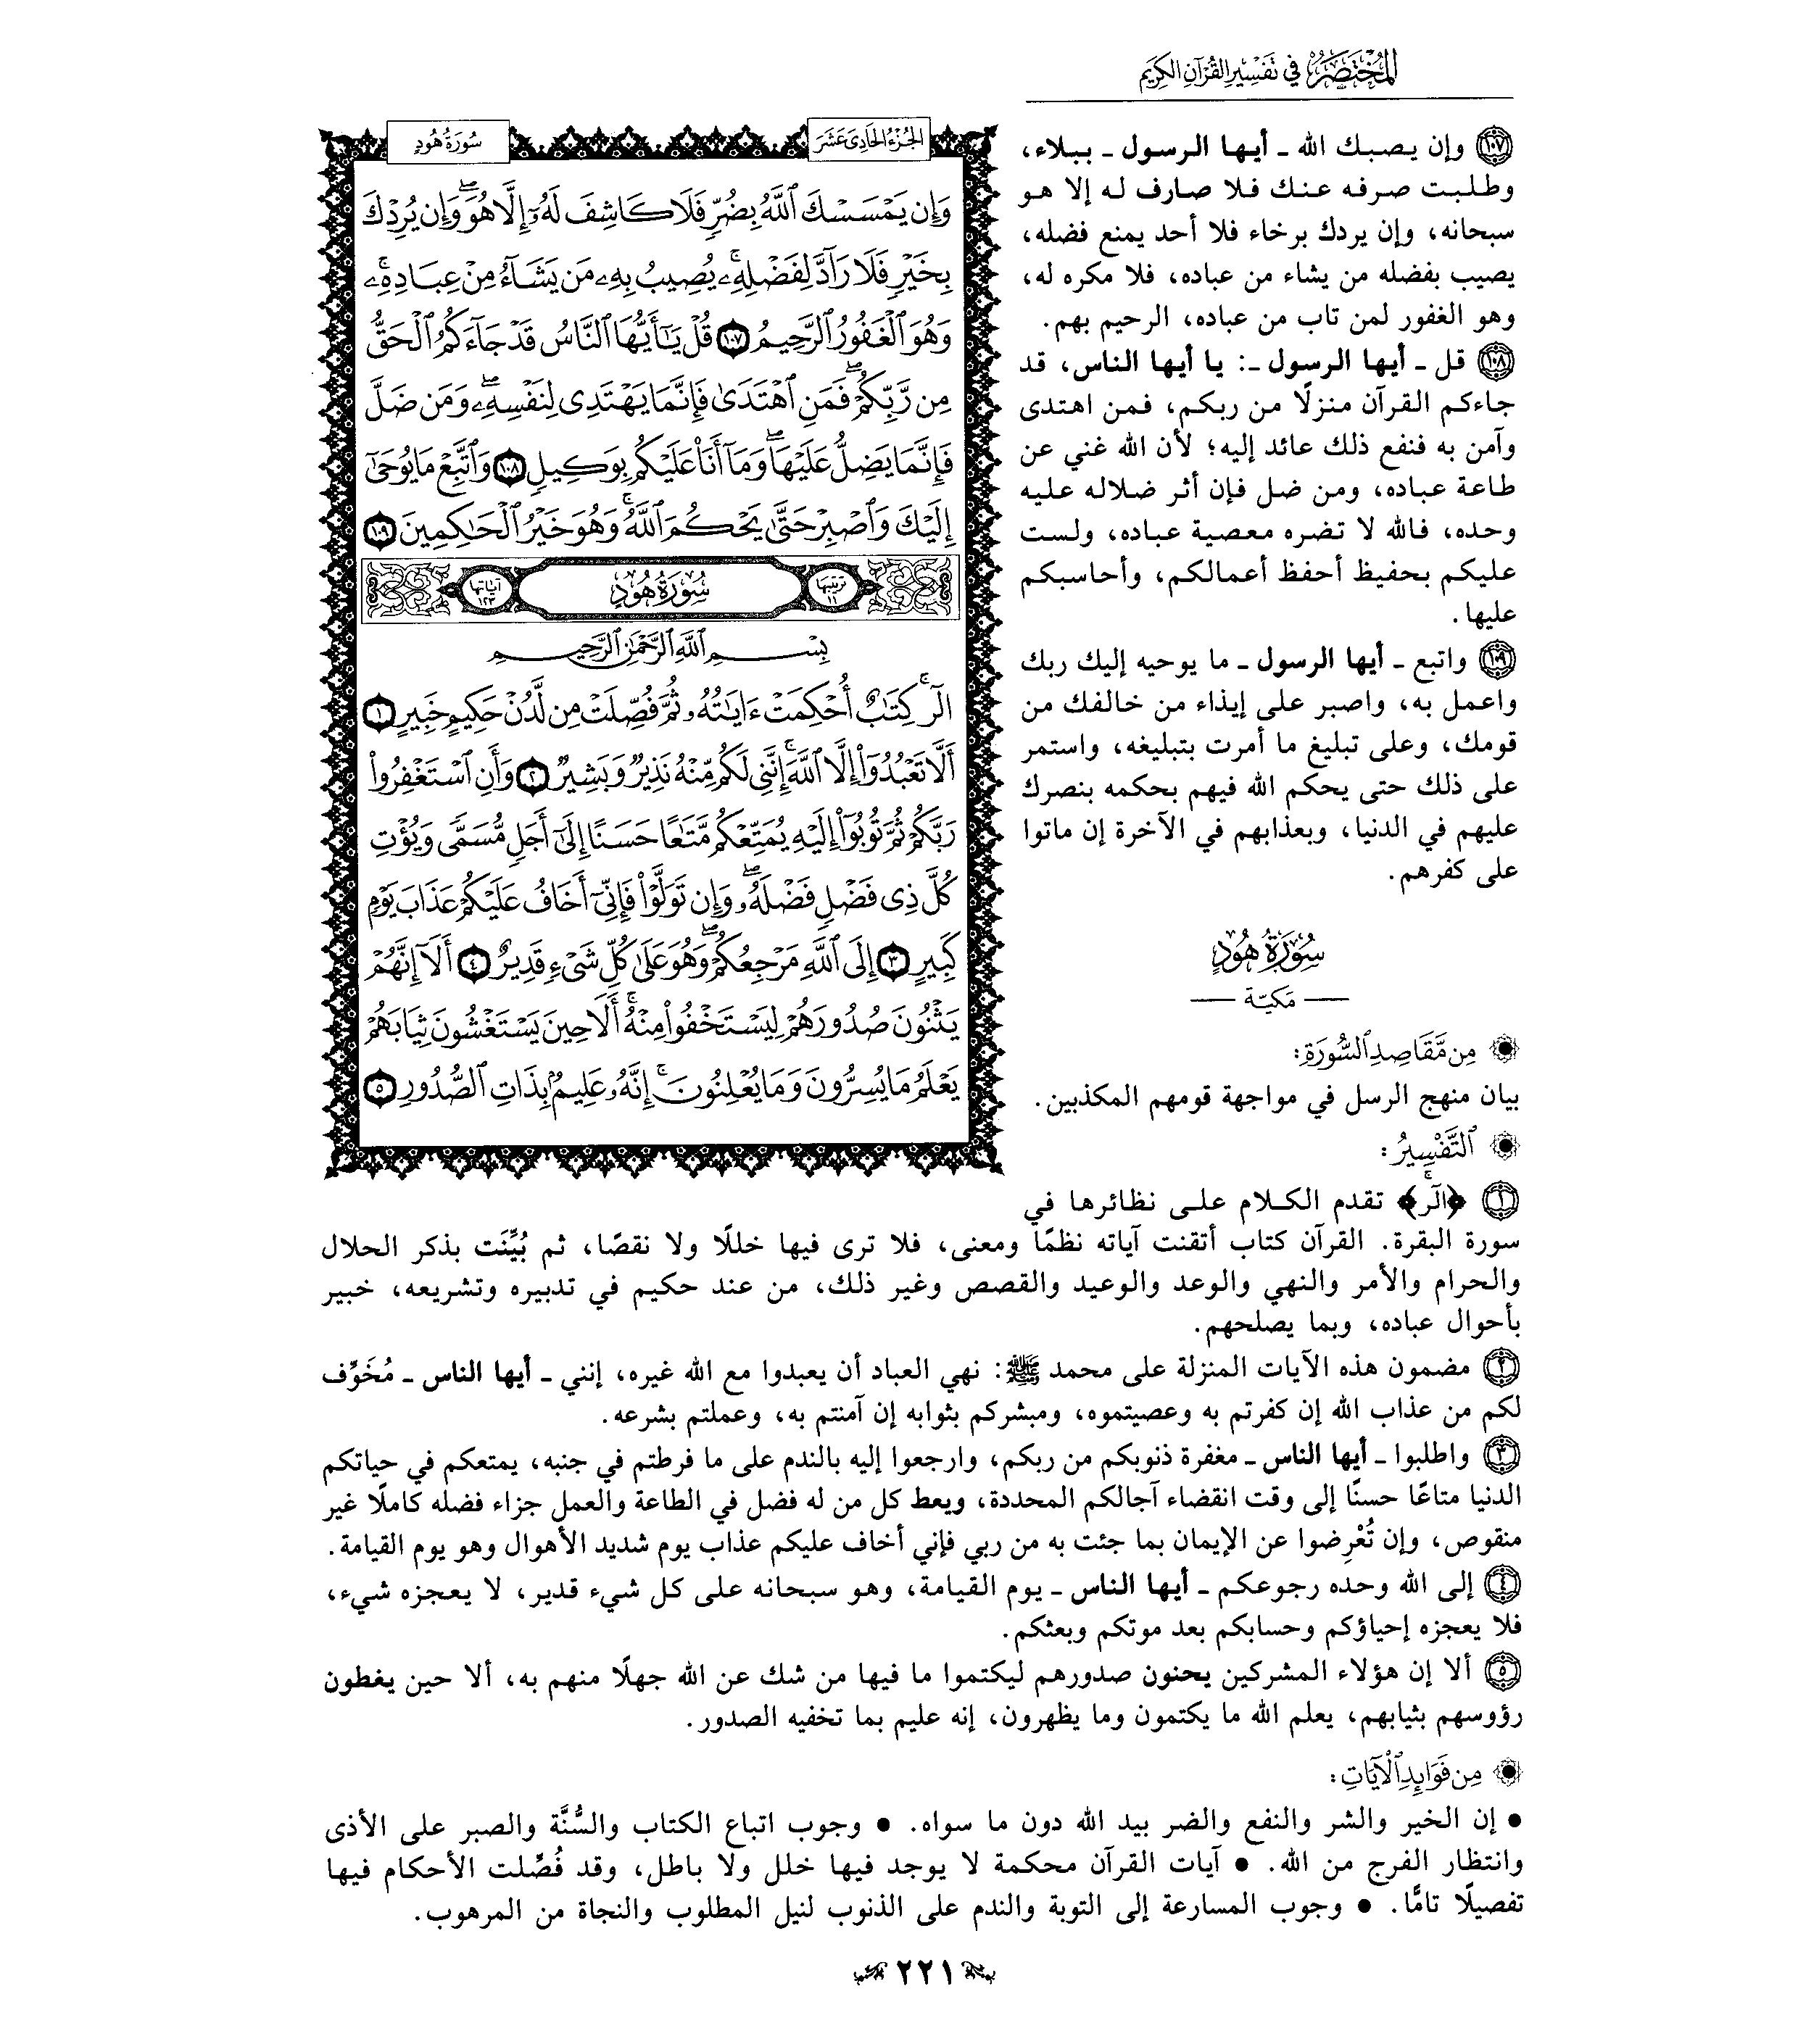 المختصر في تفسير القرآن الكريم
الجزء الحادي عشر
سورة هود
وَإِن يَمْسَسْكَ ٱللَّهُ بِضُرٍّ فَلَا كَاشِفَ لَهُۥٓ إِلَّا هُوَۖ وَإِن يُرِدْكَ
بِخَيْرٍ فَلَا رَآدَّ لِفَضْلِهِۦۚ يُصِيبُ بِهِۦ مَن يَشَآءُ مِنْ عِبَادِهِۦۚ
وَهُوَ ٱلْغَفُورُ ٱلرَّحِيمُ ١٠٧ قُلْ يَٰٓأَيُّهَا ٱلنَّاسُ قَدْ جَآءَكُمُ ٱلْحَقُّ
مِن رَّبِّكُمْۖ فَمَنِ ٱهْتَدَىٰ فَإِنَّمَا يَهْتَدِى لِنَفْسِهِۦۖ وَمَن ضَلَّ
فَإِنَّمَا يَضِلُّ عَلَيْهَاۖ وَمَآ أَنَا۠ عَلَيْكُم بِوَكِيلٍ ١٠٨ وَٱتَّبِعْ مَا يُوحَىٰٓ
إِلَيْكَ وَٱصْبِرْ حَتَّىٰ يَحْكُمَ ٱللَّهُۚ وَهُوَ خَيْرُ ٱلْحَٰكِمِينَ ١٠٩
ترتيبها ١١ سُورَةُ هُودٍ آياتها ١٢٣
بِسْمِ ٱللَّهِ ٱلرَّحْمَٰنِ ٱلرَّحِيمِ
الٓرۚ كِتَٰبٌ أُحْكِمَتْ ءَايَٰتُهُۥ ثُمَّ فُصِّلَتْ مِن لَّدُنْ حَكِيمٍ خَبِيرٍ ١
أَلَّا تَعْبُدُوٓا۟ إِلَّا ٱللَّهَۚ إِنَّنِى لَكُم مِّنْهُ نَذِيرٌ وَبَشِيرٌ ٢ وَأَنِ ٱسْتَغْفِرُوا۟
رَبَّكُمْ ثُمَّ تُوبُوٓا۟ إِلَيْهِ يُمَتِّعْكُم مَّتَٰعًا حَسَنًا إِلَىٰٓ أَجَلٍ مُّسَمًّى وَيُؤْتِ
كُلَّ ذِى فَضْلٍ فَضْلَهُۥۖ وَإِن تَوَلَّوْا۟ فَإِنِّىٓ أَخَافُ عَلَيْكُمْ عَذَابَ يَوْمٍ
كَبِيرٍ ٣ إِلَى ٱللَّهِ مَرْجِعُكُمْۖ وَهُوَ عَلَىٰ كُلِّ شَىْءٍ قَدِيرٌ ٤ أَلَآ إِنَّهُمْ
يَثْنُونَ صُدُورَهُمْ لِيَسْتَخْفُوا۟ مِنْهُۚ أَلَا حِينَ يَسْتَغْشُونَ ثِيَابَهُمْ
يَعْلَمُ مَا يُسِرُّونَ وَمَا يُعْلِنُونَۚ إِنَّهُۥ عَلِيمٌۢ بِذَاتِ ٱلصُّدُورِ ٥
١٠٧ وإن يصبك الله ـ أيها الرسول ـ ببلاء،
وطلبت صرفه عنك فلا صارف له إلا هو
سبحانه، وإن يردك برخاء فلا أحد يمنع فضله،
يصيب بفضله من يشاء من عباده، فلا مكره له،
وهو الغفور لمن تاب من عباده، الرحيم بهم.
١٠٨ قل ـ أيها الرسول ـ: يا أيها الناس، قد
جاءكم القرآن منزلًا من ربكم، فمن اهتدى
وآمن به فنفع ذلك عائد إليه؛ لأن الله غني عن
طاعة عباده، ومن ضل فإن أثر ضلاله عليه
وحده، فالله لا تضره معصية عباده، ولست
عليكم بحفيظ أحفظ أعمالكم، وأحاسبكم
عليها.
١٠٩ واتبع ـ أيها الرسول ـ ما يوحيه إليك ربك
واعمل به، واصبر على إيذاء من خالفك من
قومك، وعلى تبليغ ما أمرت بتبليغه، واستمر
على ذلك حتى يحكم الله فيهم بحكمه بنصرك
عليهم في الدنيا، وبعذابهم في الآخرة إن ماتوا
على كفرهم.
سُورَةُ هُودٍ
— مكيّة —
مِن مَّقَاصِدِ ٱلسُّورَةِ:
بيان منهج الرسل في مواجهة قومهم المكذبين.
ٱلتَّفْسِيرُ:
١ ﴿الٓرۚ﴾ تقدم الكلام على نظائرها في
سورة البقرة. القرآن كتاب أتقنت آياته نظمًا ومعنى، فلا ترى فيها خللًا ولا نقصًا، ثم بُيِّنَت بذكر الحلال
والحرام والأمر والنهي والوعد والوعيد والقصص وغير ذلك، من عند حكيم في تدبيره وتشريعه، خبير
بأحوال عباده، وبما يصلحهم.
٢ مضمون هذه الآيات المنزلة على محمد ﷺ: نهي العباد أن يعبدوا مع الله غيره، إنني ـ أيها الناس ـ مُخَوِّف
لكم من عذاب الله إن كفرتم به وعصيتموه، ومبشركم بثوابه إن آمنتم به، وعملتم بشرعه.
٣ واطلبوا ـ أيها الناس ـ مغفرة ذنوبكم من ربكم، وارجعوا إليه بالندم على ما فرطتم في جنبه، يمتعكم في حياتكم
الدنيا متاعًا حسنًا إلى وقت انقضاء آجالكم المحددة، ويعط كل من له فضل في الطاعة والعمل جزاء فضله كاملًا غير
منقوص، وإن تُعْرِضوا عن الإيمان بما جئت به من ربي فإني أخاف عليكم عذاب يوم شديد الأهوال وهو يوم القيامة.
٤ إلى الله وحده رجوعكم ـ أيها الناس ـ يوم القيامة، وهو سبحانه على كل شيء قدير، لا يعجزه شيء،
فلا يعجزه إحياؤكم وحسابكم بعد موتكم وبعثكم.
٥ ألا إن هؤلاء المشركين يحنون صدورهم ليكتموا ما فيها من شك عن الله جهلًا منهم به، ألا حين يغطون
رؤوسهم بثيابهم، يعلم الله ما يكتمون وما يظهرون، إنه عليم بما تخفيه الصدور.
مِن فَوَائِدِ ٱلْآيَاتِ:
● إن الخير والشر والنفع والضر بيد الله دون ما سواه. ● وجوب اتباع الكتاب والسُّنَّة والصبر على الأذى
وانتظار الفرج من الله. ● آيات القرآن محكمة لا يوجد فيها خلل ولا باطل، وقد فُصِّلت الأحكام فيها
تفصيلًا تامًّا. ● وجوب المسارعة إلى التوبة والندم على الذنوب لنيل المطلوب والنجاة من المرهوب.
٢٢١